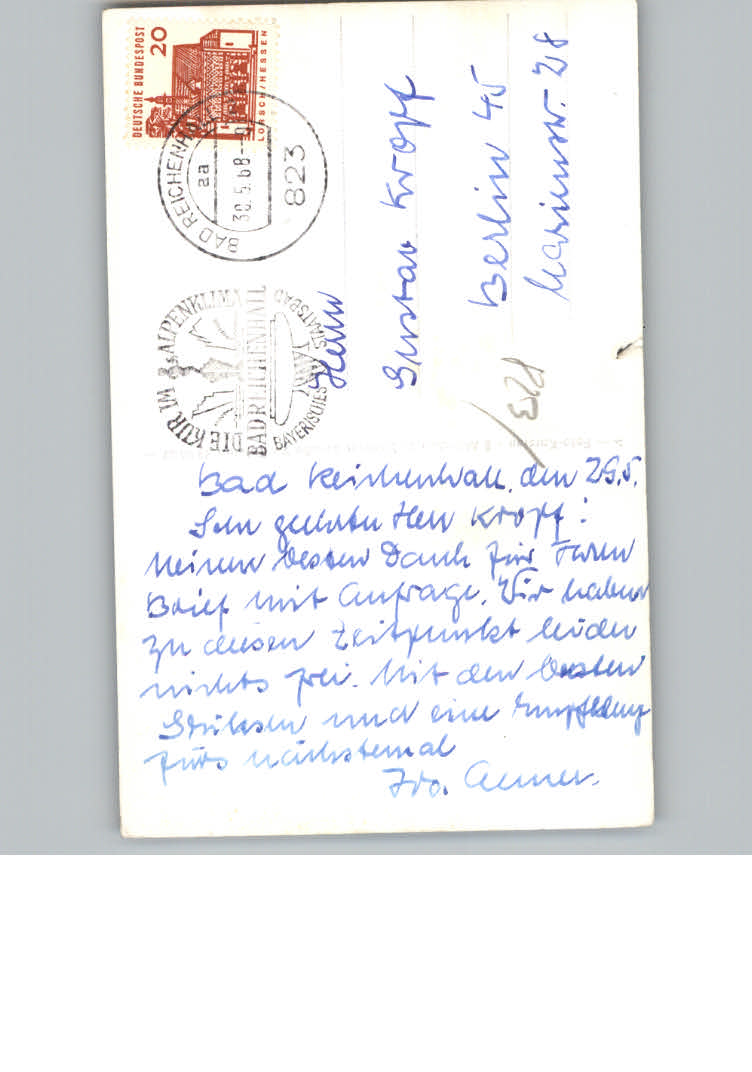 DEUTSCHE BUNDESPOST
20
LORSCH/HESSEN
BAD REICHENHALL
aa
30.5.68
823
DIE KUR IM ALPENKLIMA
BAD REICHENHALL
BAYERISCHES STAATSBAD
Herrn
Gustav Kropf
Berlin 45
Marienstr. 28
Bad Reichenhall, den 29.5.
Sehr geehrter Herr Kropf!
Meinen besten Dank für Ihren
Brief mit Anfrage. Wir haben
zu diesen Zeitpunkt leider
nichts frei. Mit den besten
Grüssen und eine Empfehlung
fürs nächstemal